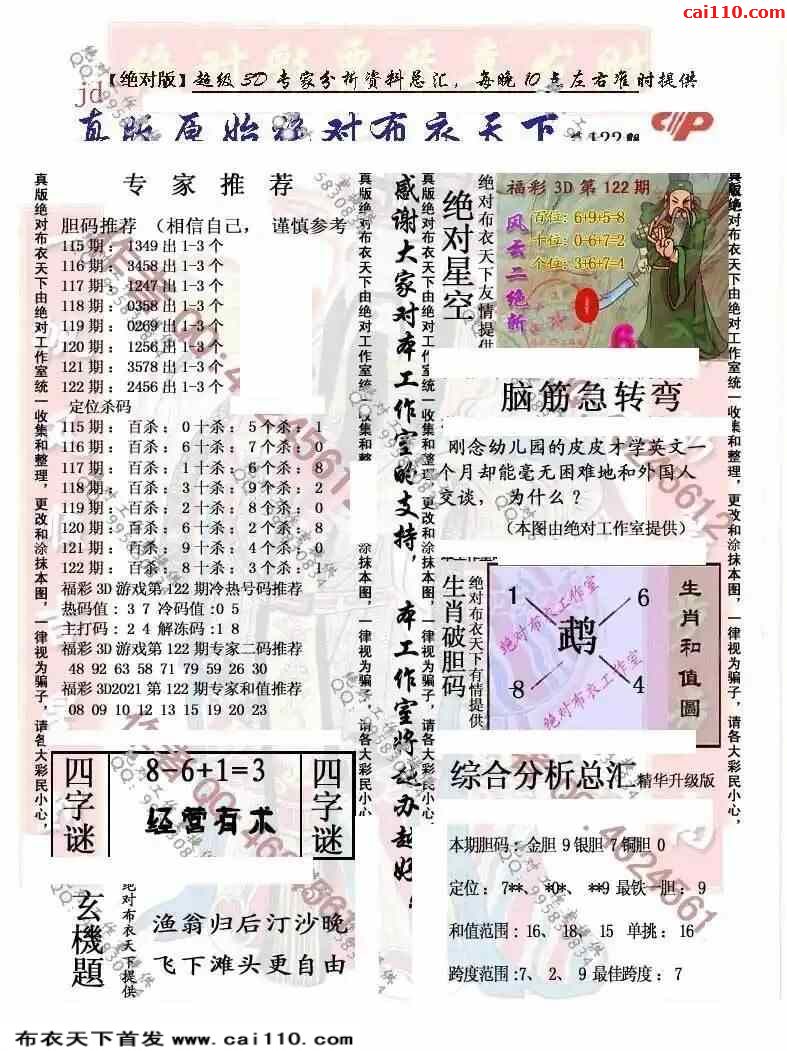 cai110.com
【绝对版】超级3D专家分析资料总汇，每晚10点左右准时提供
jd
真版原始绝对布衣天下 第122期
专家推荐
胆码推荐 （相信自己， 谨慎参考
115 期： 1349 出 1-3 个
116 期： 3458 出 1-3 个
117 期： 1247 出 1-3 个
118 期： 0358 出 1-3 个
119 期： 0269 出 1-3 个
120 期： 1256 出 1-3 个
121 期： 3578 出 1-3 个
122 期： 2456 出 1-3 个
定位杀码
115 期： 百杀： 0 十杀： 5 个杀： 1
116 期： 百杀： 6 十杀： 7 个杀： 0
117 期： 百杀： 1 十杀： 6 个杀： 8
118 期： 百杀： 3 十杀： 9 个杀： 2
119 期： 百杀： 2 十杀： 8 个杀： 0
120 期： 百杀： 6 十杀： 2 个杀： 8
121 期： 百杀： 9 十杀： 4 个杀： 0
122 期： 百杀： 8 十杀： 3 个杀： 1
福彩 3D 游戏第 122 期冷热号码推荐
热码值：3 7 冷码值:0 5
主打码：2 4 解冻码:1 8
福彩 3D 游戏第 122 期专家二码推荐
48 92 63 58 71 79 59 26 30
福彩 3D2021 第 122 期专家和值推荐
08 09 10 12 13 15 19 20 23
真版绝对布衣天下由绝对工作室统一收集和整理，更改和涂抹本图，一律视为骗子，请各大彩民小心，
真版绝对布衣天下由绝对工作室统一收集和整
涂抹本图，一律视为骗子，请各大彩民小心，
感谢大家对本工作室的支持，本工作室将越办越好
真版绝对布衣天下由绝对工作室统一收集和整理，更改和涂抹本图，一律视为骗子，请各大彩民小心，
绝对星空
绝对布衣天下友情提供
福彩 3D 第 122 期
风云二绝斩
百位：6+9.5=8
十位：0-6+7=2
个位：3+6+7=4
0
6
真版绝对布衣天下由绝对工作室统
收集和整理，更改和涂抹本图，一律视为骗子，请各大彩民小心，
脑筋急转弯
刚念幼儿园的皮皮才学英文一
个月却能毫无困难地和外国人
交谈， 为什么？
（本图由绝对工作室提供）
生肖破胆码
绝对布衣天下有情提供
1
6
鹉
8
4
绝对布衣工作室
绝对布衣工作室
生肖和值圖
四字谜
8-6+1=3
经营有术
四字谜
综合分析总汇 精华升级版
本期胆码：金胆 9 银胆 7 铜胆 0
定位：7**、 *0*、 **9 最铁一胆：9
和值范围：16、 18、 15 单挑：16
跨度范围:7、 2、 9 最佳跨度：7
玄機題
绝对布衣天下提供
渔翁归后汀沙晚
飞下滩头更自由
布衣天下首发 www.cai110.com